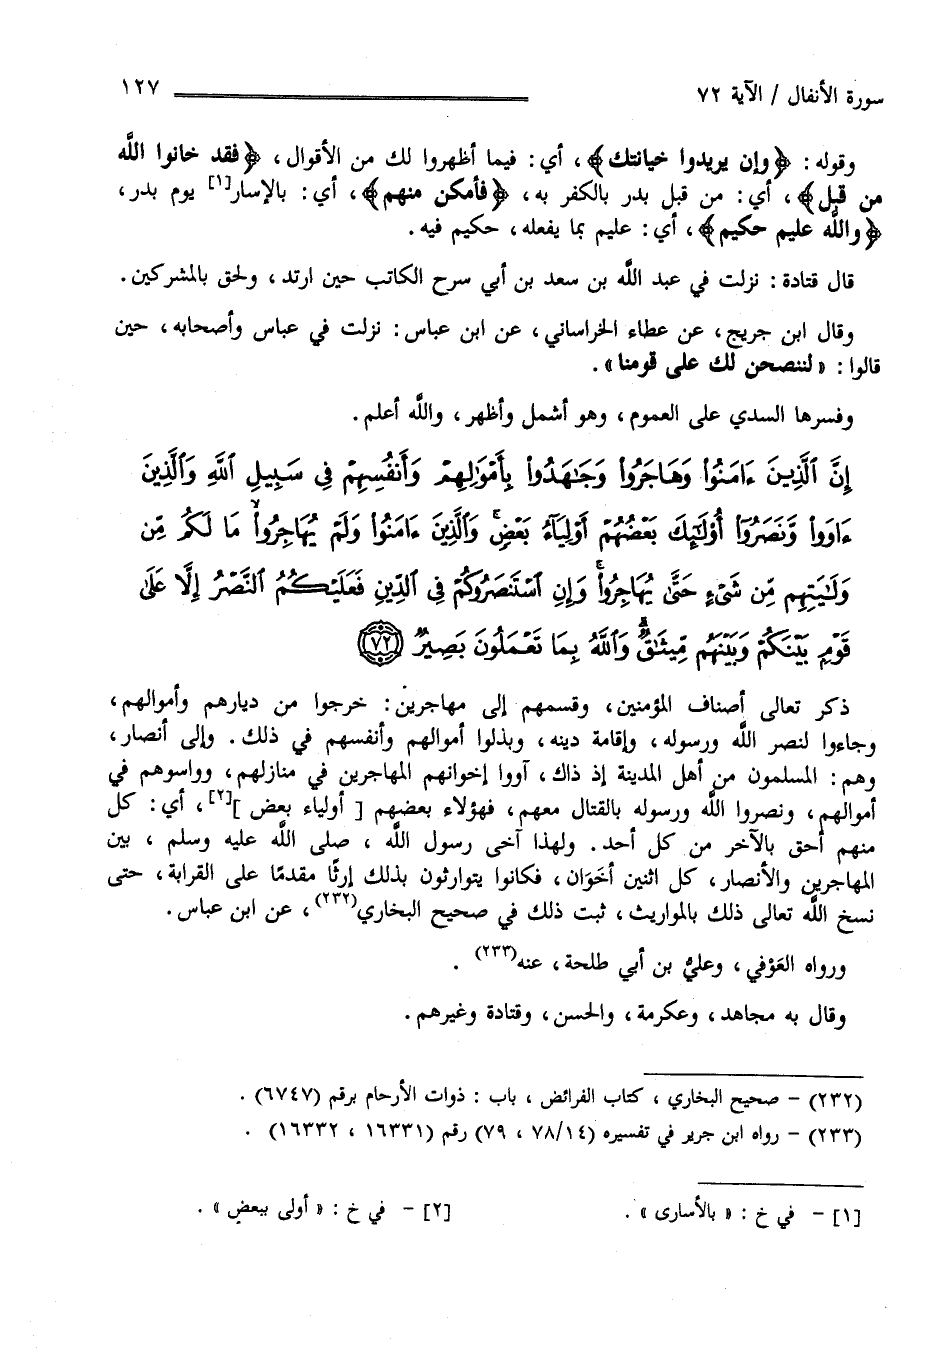 سورة الأنفال / الآية ٧٢ ١٢٧
وقوله : ﴿وإن يريدوا خيانتك﴾ ، أي : فيما أظهروا لك من الأقوال ، ﴿فقد خانوا اللّه
من قبل﴾ ، أي : من قبل بدر بالكفر به ، ﴿فأمكن منهم﴾ ، أي : بالإسار[١] يوم بدر ،
﴿واللّه عليم حكيم﴾ ، أي : عليم بما يفعله ، حكيم فيه .
قال قتادة : نزلت في عبد اللّه بن سعد بن أبي سرح الكاتب حين ارتد ، ولحق بالمشركين .
وقال ابن جريج ، عن عطاء الخراساني ، عن ابن عباس : نزلت في عباس وأصحابه ، حين
قالوا : « لننصحن لك على قومنا » .
وفسرها السدي على العموم ، وهو أشمل وأظهر ، واللّه أعلم .
إِنَّ ٱلَّذِينَ ءَامَنُوا۟ وَهَاجَرُوا۟ وَجَـٰهَدُوا۟ بِأَمْوَٰلِهِمْ وَأَنفُسِهِمْ فِى سَبِيلِ ٱللَّهِ وَٱلَّذِينَ
ءَاوَوا۟ وَّنَصَرُوٓا۟ أُو۟لَـٰٓئِكَ بَعْضُهُمْ أَوْلِيَآءُ بَعْضٍ ۚ وَٱلَّذِينَ ءَامَنُوا۟ وَلَمْ يُهَاجِرُوا۟ مَا لَكُم مِّن
وَلَـٰيَتِهِم مِّن شَىْءٍ حَتَّىٰ يُهَاجِرُوا۟ ۚ وَإِنِ ٱسْتَنصَرُوكُمْ فِى ٱلدِّينِ فَعَلَيْكُمُ ٱلنَّصْرُ إِلَّا عَلَىٰ
قَوْمٍۭ بَيْنَكُمْ وَبَيْنَهُم مِّيثَـٰقٌ ۗ وَٱللَّهُ بِمَا تَعْمَلُونَ بَصِيرٌ ٧٢
ذكر تعالى أصناف المؤمنين ، وقسمهم إلى مهاجرين : خرجوا من ديارهم وأموالهم ،
وجاءوا لنصر اللّه ورسوله ، وإقامة دينه ، وبذلوا أموالهم وأنفسهم في ذلك . وإلى أنصار ،
وهم : المسلمون من أهل المدينة إذ ذاك ، آووا إخوانهم المهاجرين في منازلهم ، وواسوهم في
أموالهم ، ونصروا اللّه ورسوله بالقتال معهم ، فهؤلاء بعضهم [ أولياء بعض ][٢] ، أي : كل
منهم أحق بالآخر من كل أحد . ولهذا آخى رسول اللّه ، صلى اللّه عليه وسلم ، بين
المهاجرين والأنصار ، كل اثنين أخَوَان ، فكانوا يتوارثون بذلك إرثًا مقدمًا على القرابة ، حتى
نسخ اللّه تعالى ذلك بالمواريث ، ثبت ذلك في صحيح البخاري(٢٣٢) ، عن ابن عباس .
ورواه العَوْفي ، وعليُّ بن أبي طلحة ، عنه(٢٣٣) .
وقال به مجاهد ، وعكرمة ، والحسن ، وقتادة وغيرهم .
(٢٣٢) – صحيح البخاري ، كتاب الفرائض ، باب : ذوات الأرحام برقم (٦٧٤٧) .
(٢٣٣) – رواه ابن جرير في تفسيره (٧٨/١٤ ، ٧٩) رقم (١٦٣٣١ ، ١٦٣٣٢) .
[١] – في خ : « بالأسارى » . [٢] – في خ : « أولى ببعض » .